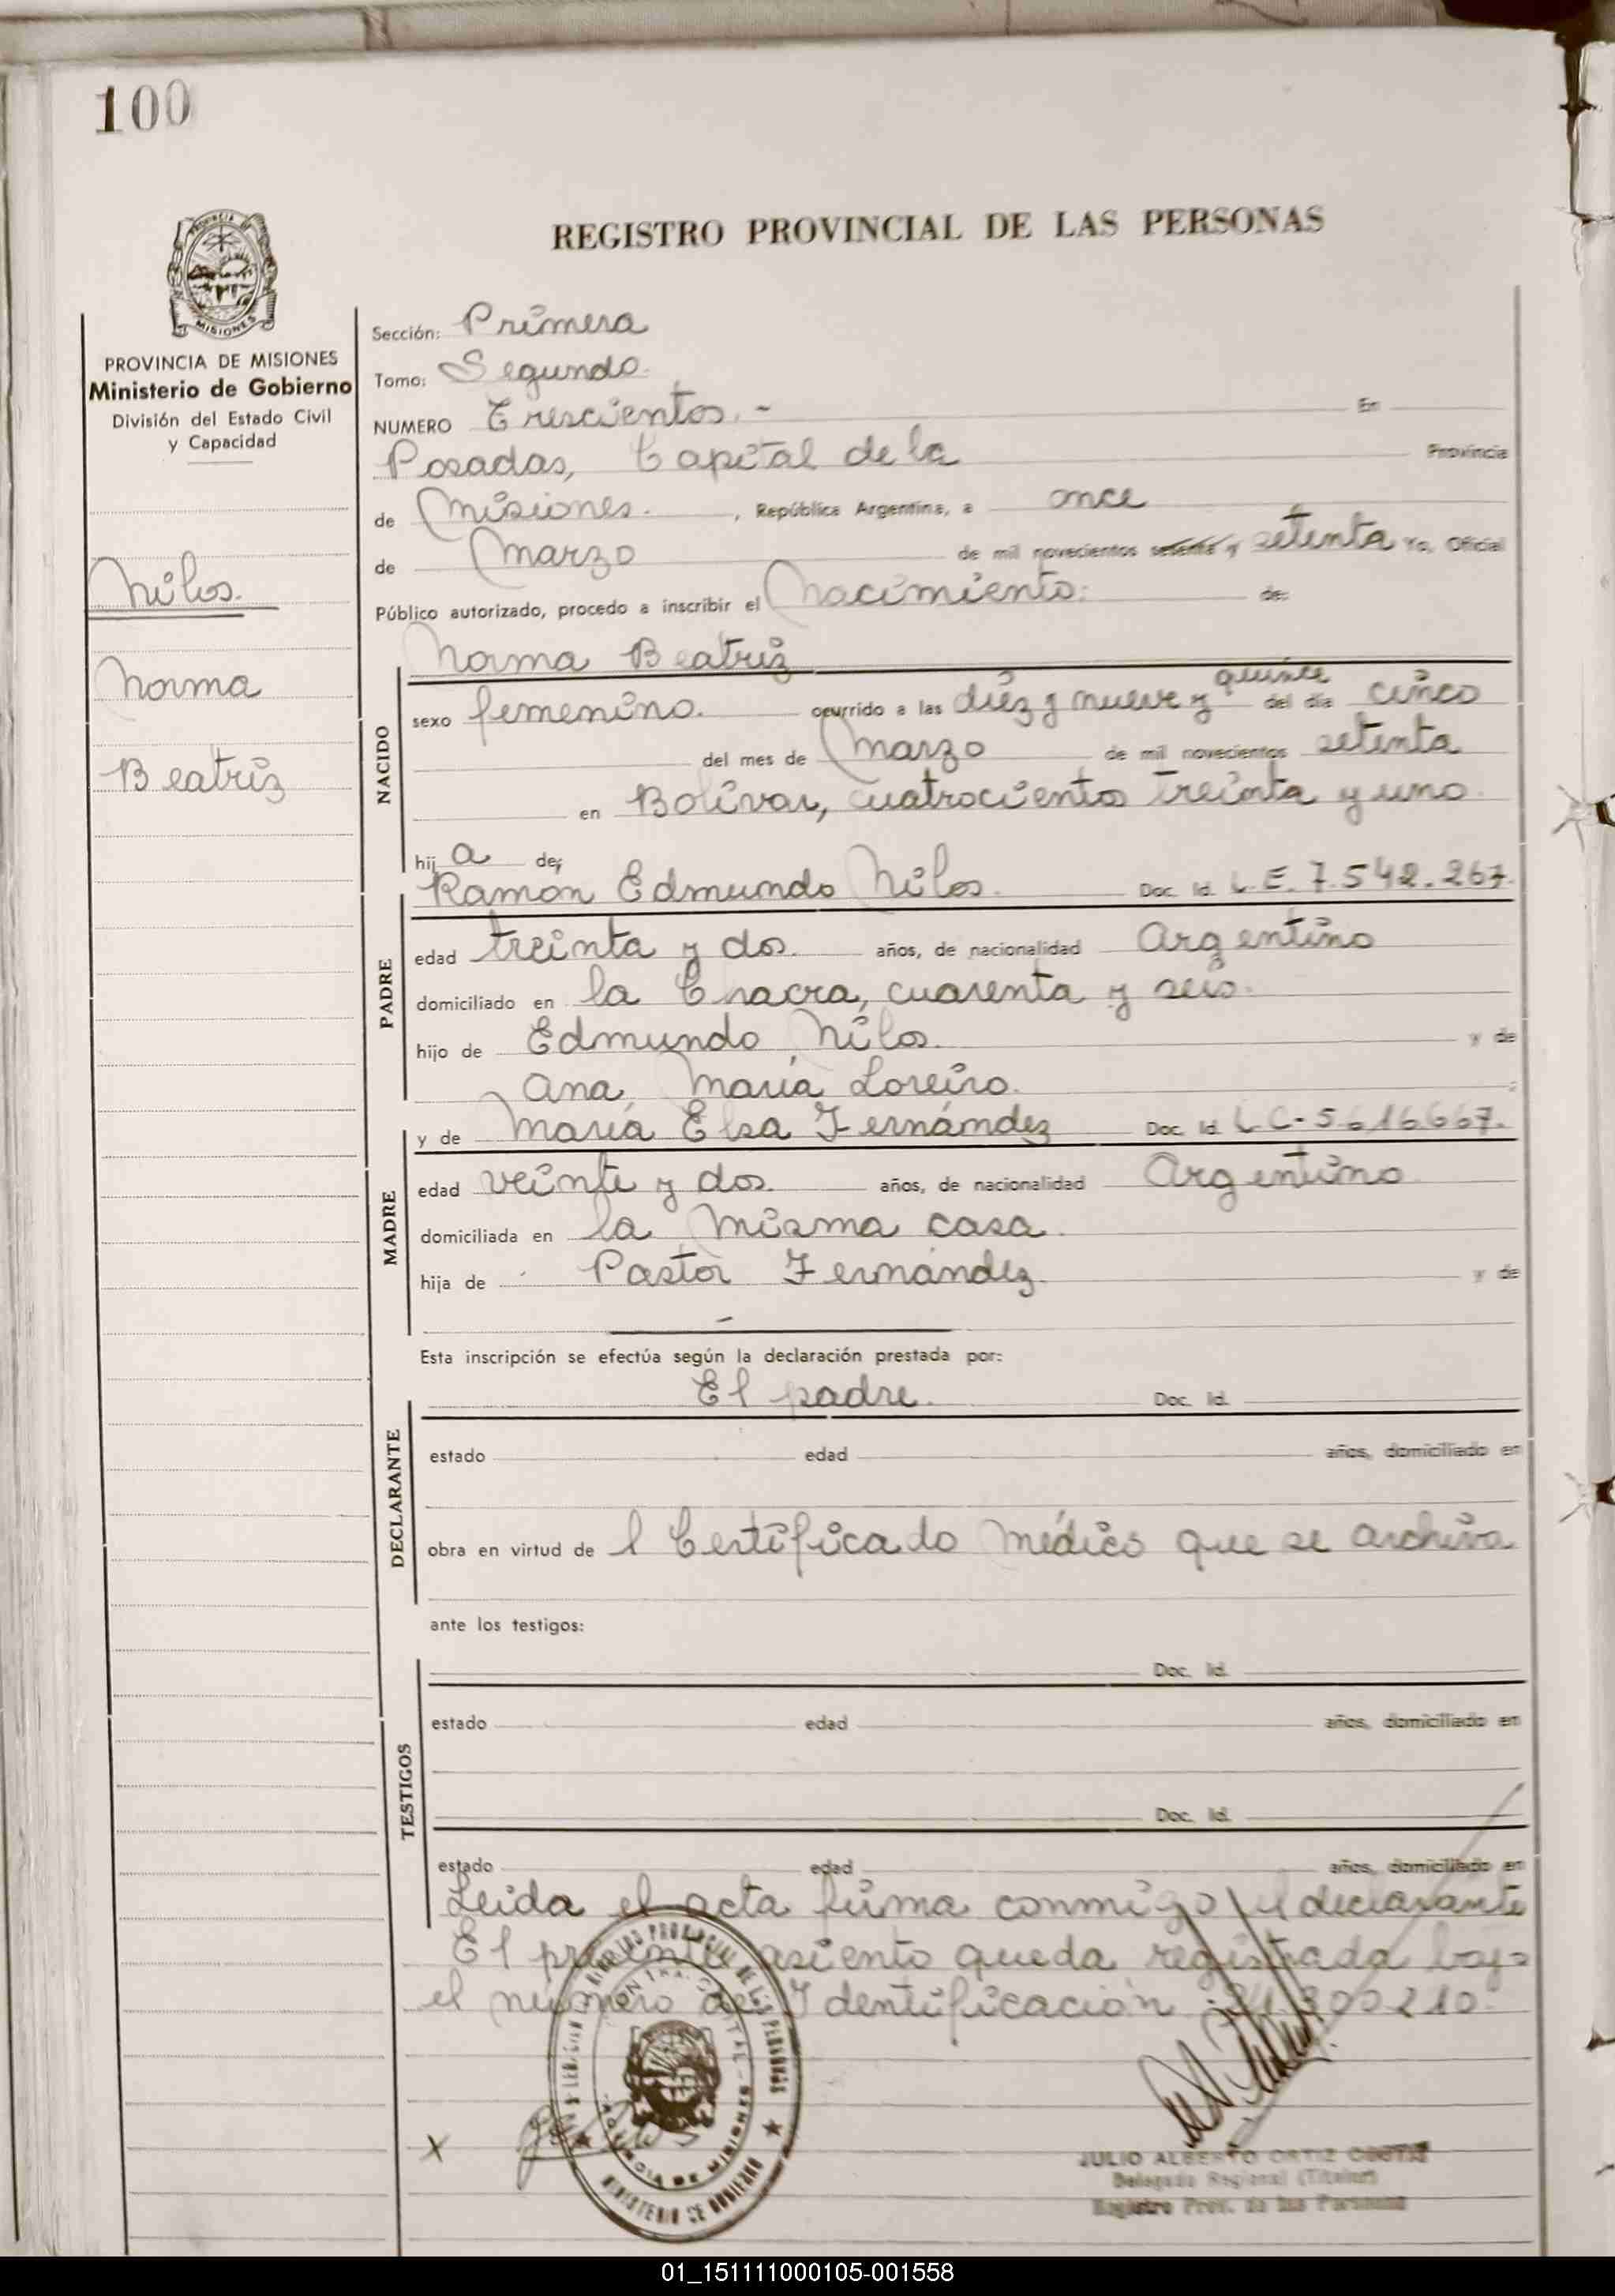 100
REGISTRO PROVINCIAL DE LAS PERSONAS
PROVINCIA
MISIONES
PROVINCIA DE MISIONES
Ministerio de Gobierno
División del Estado Civil
y Capacidad
Nilos.
Norma
Beatriz
Sección: Primera
Tomo: Segundo.
NUMERO Trescientos.- En
Posadas, Capital de la Provincia
de Misiones. , República Argentina, a once
de Marzo de mil novecientos sesenta y setenta Yo, Oficial
Público autorizado, procedo a inscribir el Nacimiento: de:
Norma Beatriz
NACIDO
sexo femenino. ocurrido a las diez y nueve y quince del día cinco
del mes de Marzo de mil novecientos setenta
en Bolívar, cuatrocientos treinta y uno.
hij a de;
Ramón Edmundo Nilos. Doc. Id. L.E. 7.542.267.
PADRE
edad treinta y dos. años, de nacionalidad Argentino
domiciliado en la Chacra, cuarenta y seis.
hijo de Edmundo Nilos. y de
Ana María Loreiro. ;
y de María Elsa Fernández Doc. Id. L.C-5.616.667.
MADRE
edad veinte y dos. años, de nacionalidad Argentino
domiciliada en la misma casa.
hija de Pastor Fernández. y de
Esta inscripción se efectúa según la declaración prestada por:
El padre. Doc. Id.
DECLARANTE
estado edad años, domiciliado en
obra en virtud de l Certificado médico que se archiva
ante los testigos:
Doc. Id.
TESTIGOS
estado edad años, domiciliado en
Doc. Id.
estado edad años, domiciliado en
Leida el acta firma conmigo el declarante
El presente asiento queda registrada bajo
el número de Identificación 21.300210.
X
REGISTRO PROVINCIAL DE LAS PERSONAS
PROVINCIA DE MISIONES
MINISTERIO DE GOBIERNO
JULIO ALBERTO ORTIZ
Delegado Regional (Titular)
Registro Prov. de las Personas
01_151111000105-001558